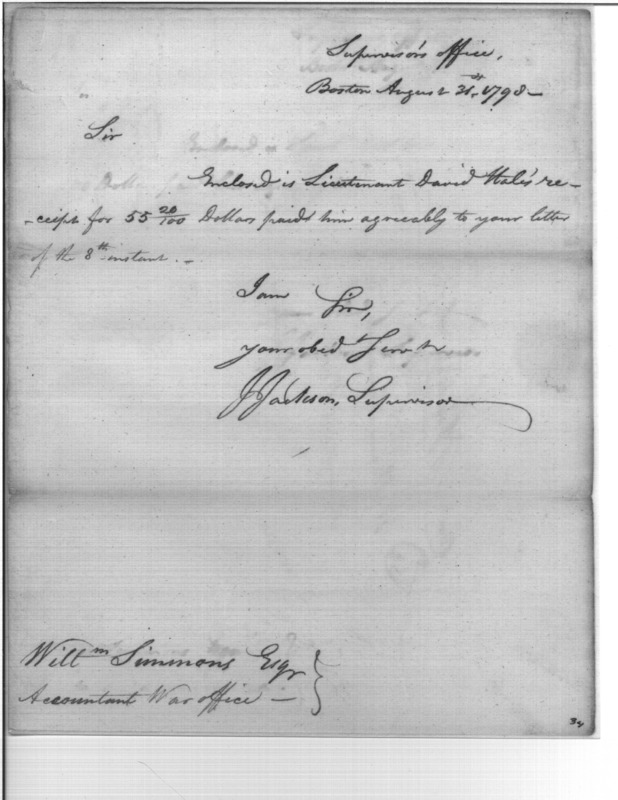 Supervisor's office,
Boston August 21st, 1798 —
Sir
Enclosed is Lieutenant David Hale's re-
-ceipt for 55 20/100 Dollars paid him agreeably to your letter
of the 8th instant. —
I am Sir,
your obedt Servt
J Jackson, Supervisor
Willm Simmons Esqr
Accountant War office —
34